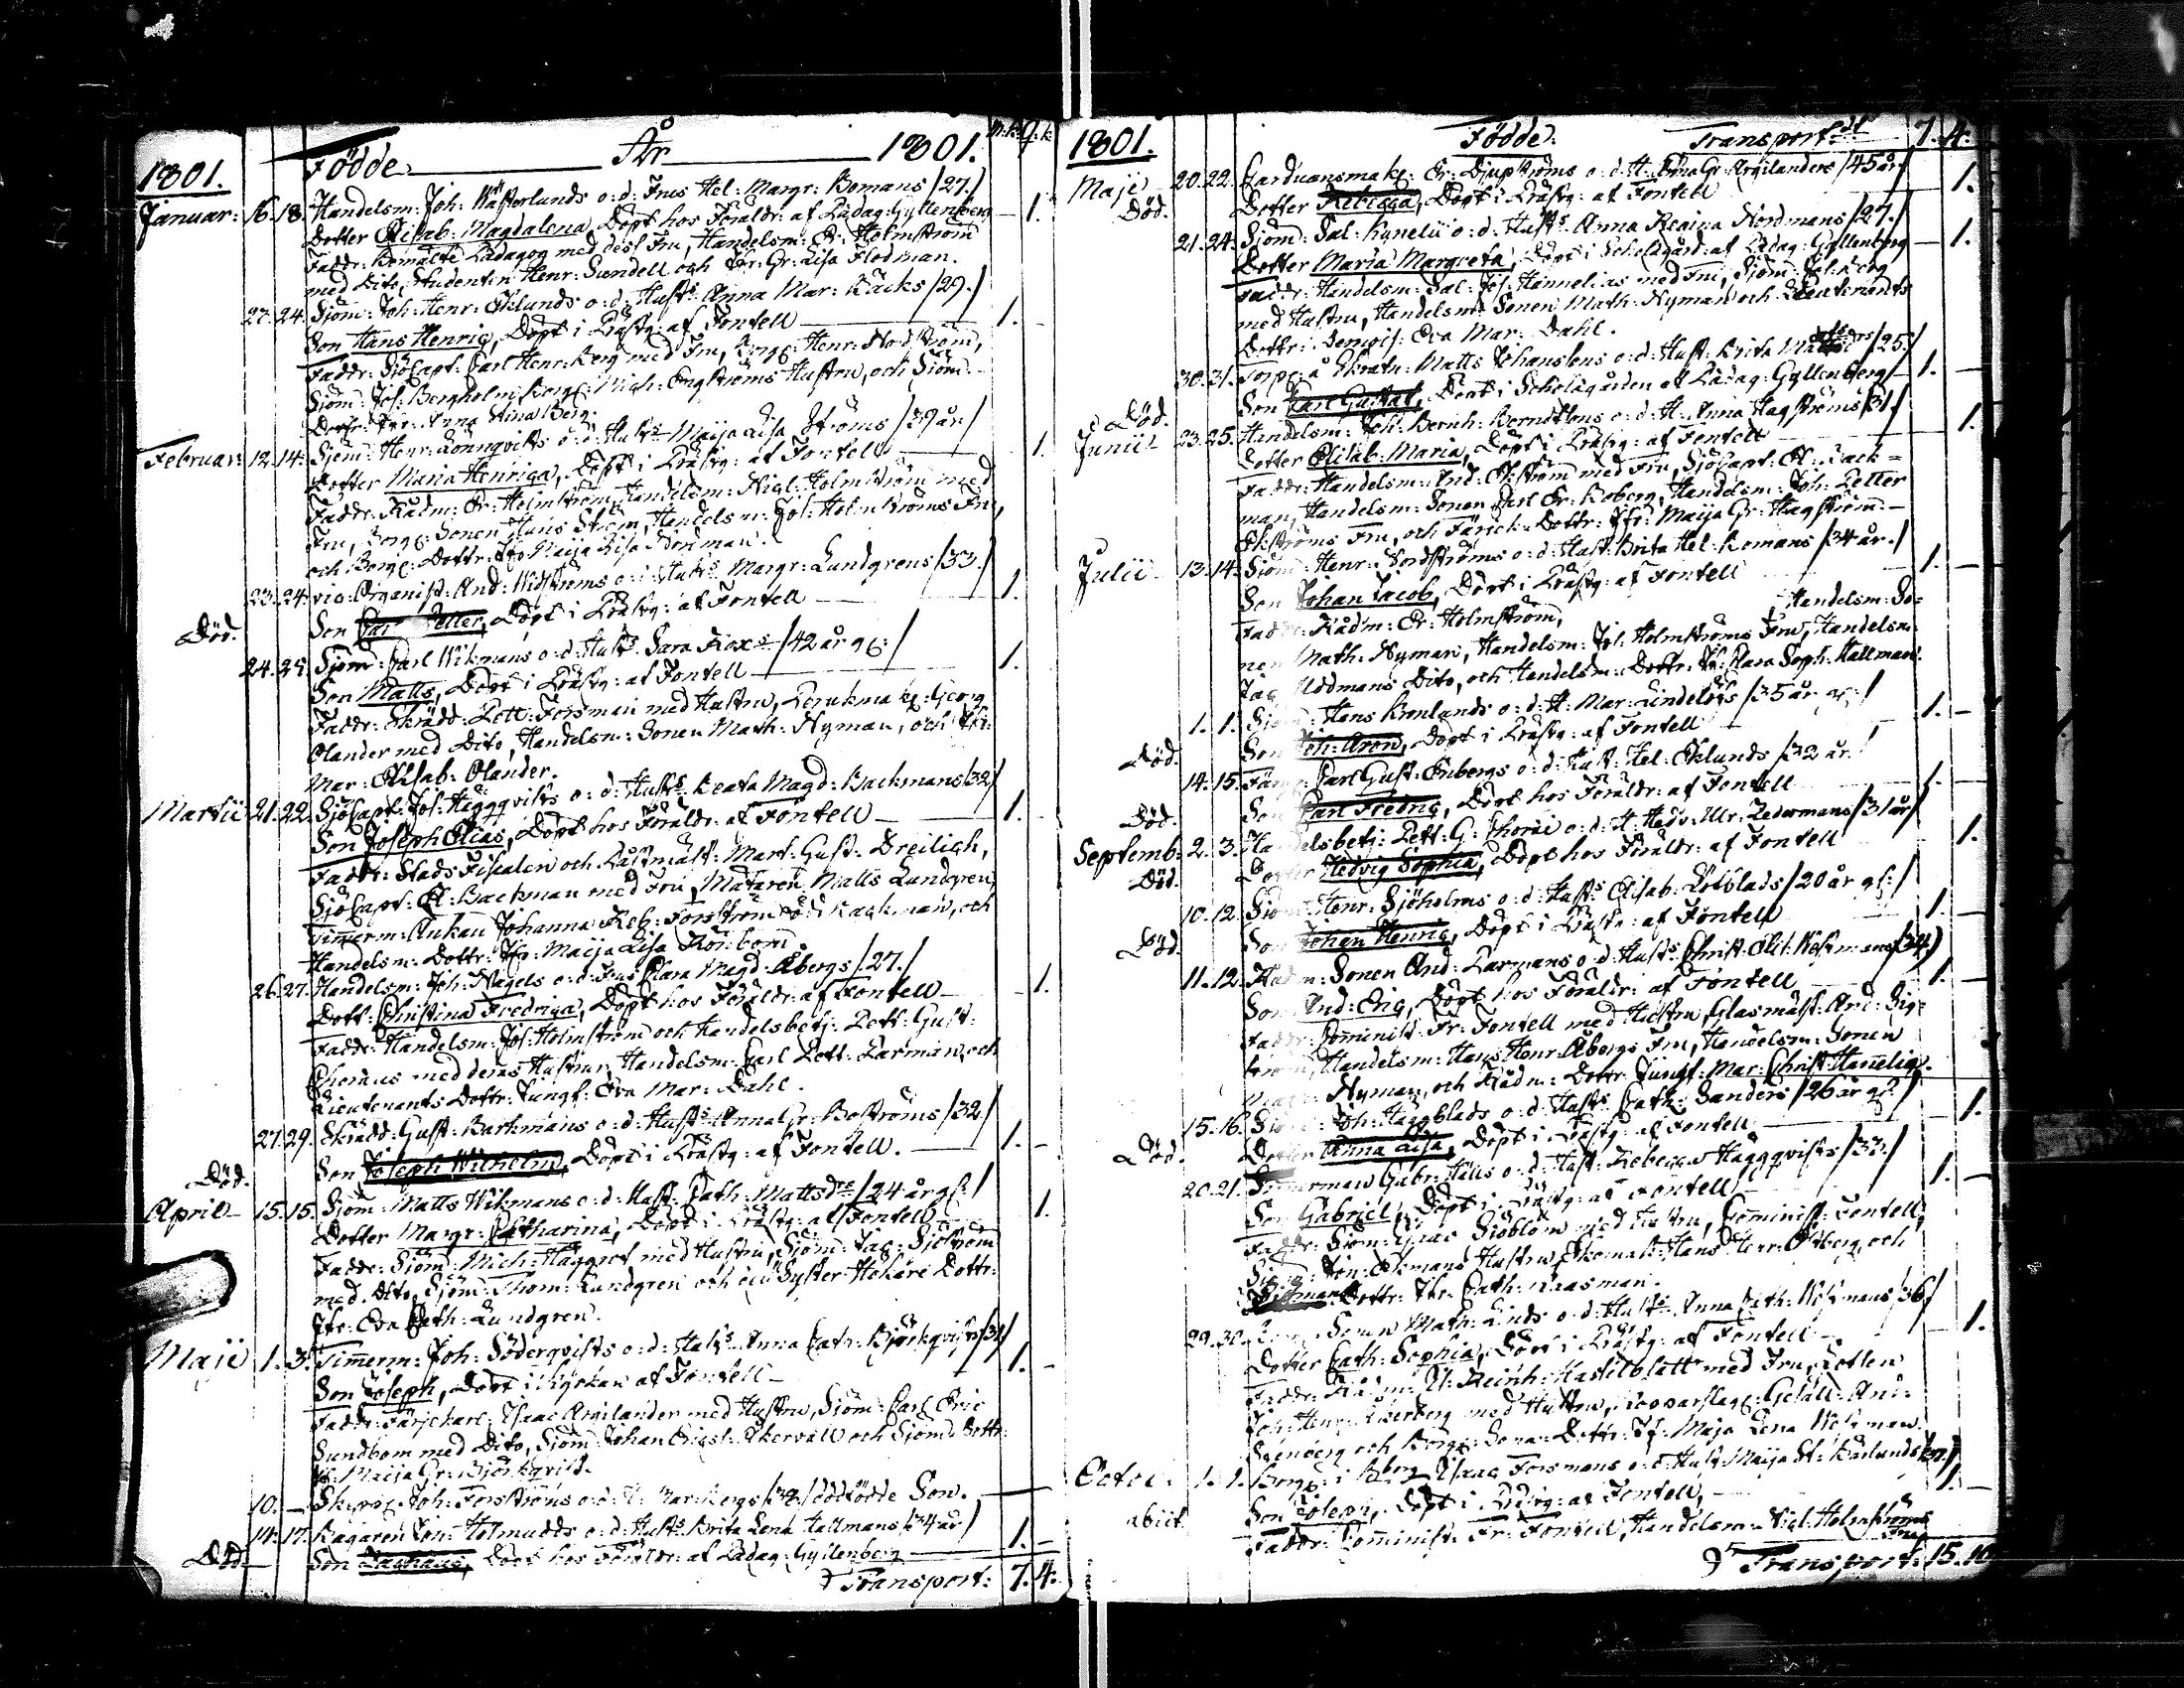 1801. Födde År 1801. m:k: q:k:
Januar: 16. 18. Handelsm: Joh: Wästerlunds o: d: Frus Hel: Margr: Bomans /27./
Dotter Elisab: Magdalena, Döpt hos Föräldr: af Pädag: Gyllenberg — 1.
Faddr: Bemälte Pädagog med dess Fru, Handelsm: Er: Holmström
med Dito, Studenten Henr: Sundell och Jfr: Gr: Lisa Flodman.
27. 24. Sjöm: Joh: Henr: Eklunds o: d: Hustrs Anna Mar: Bäcks /29./
Son Hans Henric, Döpt i Prästg: af Fontell — 1.
Faddr: Sjöcapt: Carl Henr: Berg med Fru, Borg: Henr: Nordström,
Sjöm: Jos: Bergholm, Borg: Mich: Engströms Hustru, och Sjöm:
Dottr: Jfr: Anna Stina Berg.
Februar: 12. 14. Sjöm: Henr: Rönnqvists o: d: Hustrs Maija Lisa Ströms /39 år/
Dotter Maria Henrica, Döpt i Prästg: af Fontell — 1.
Faddr: Rådm: Er: Holmström, Handelsm: Nicl: Holmström med
Fru, Borg: Sonen Hans Ström, Handelsm: Jos: Holmströms Fru,
och Borg: Dottr: Jfr Maija Lisa Nordman.
23. 24. vic: Organist: And: Widströms o: d: Hustrs Margr: Lundgrens /33./
Död. Son Petter, Döpt i Prästg: af Fontell — 1.
24. 25. Sjöm: Carl Wikmans o: d: Hustrs Sara /42 år gl:/
Son Matts, Döpt i Prästg: af Fontell — 1.
Faddr: Skrädd: Pett: Forsman med Hustru, Perukmak: Georg
Olander med Dito, Handelsm: Sonen Math: Nyman, och Jfr:
Mar: Elisab: Olander.
Martii 21. 22. Sjöcapt: Jos: Häggqvists o: d: Hustrs Beata Magd: Backmans /32/
Son Joseph Elias, Döpt hos Föräldr: af Fontell — 1.
Faddr: Stads Fiscalen och Postmäst: Mart: Gust: Dreilich,
Sjöcapt: El: Backman med Fru, Mätaren Matts Lundgren,
Timerm: Enkan Johanna Reb: Forsström född Backman, och
Handelsm: Dottr: Jfr: Maija Lisa Rönbom.
26. 27. Handelsm: Joh: Nagels o: d: Frus Clara Magd: Åbergs /27./
Dott: Christina Fredrica, Döpt hos Föräldr: af Fontell — 1.
Faddr: Handelsm: Jos: Holmström och Handelsbetj: Pett: Gust:
Choræus med deras Hustrur, Handelsm: Carl Pett: Carman, och
Lieutenants Dottr: Jungf: Eva Mar: Dahl.
27. 29. Skrädd: Gust: Barkmans o: d: Hustrs Anna Gr: Boströms /32/
Död. Son Joseph Wilhelm, Döpt i Prästg: af Fontell. — 1.
April 15. 15. Sjöm: Matts Wikmans o: d: Hust: Cath: Mattsdrs /24 år gl:/
Dotter Margr: Catharina, Döpt i Prästg: af Fontell — 1.
Faddr: Sjöm: Mich: med Hustru, Sjöm: Jac: Sjöström
med Dito, Sjöm: Thom: Lundgren och Syster Dottr:
Jfr: Eva Cath: Lundgren.
Maji 1. 3. Timerm: Joh: Söderqvists o: d: Hustrs Anna Cath: Björkqvists /32/
Son Joseph, Döpt i Kyrkan af Fontell — 1.
Faddr: Isaac Argilander med Hustru, Sjöm: Carl Eric
Sundbom med Dito, Sjöm: Johan och Sjöm: Dottr:
Jfr: Maija Gr: Björkqvist.
10. — Joh: Forsströms o: d: H: Mar: Bergs /32/ dödfödde Son. —
14. 17. Bagaren Jon: Holmudds o: d: Hustrs Brita Lena Hallmans /34 år/
Död. Son Zacharias, Döpt hos Föräldr: af Pädag: Gyllenberg — 1.
Transport: 7. 4.
1801. Födde. Transport:dt 7. 4.
Maji 20. 22. Carduansmak: Er: Djupströms o: d: H: Gr: Argilanders /45 år/
Död. Dotter Rebecca, Döpt i Prästg: af Fontell — 1.
21. 24. Sjöm: Sal: o: d: Hustrs Anna Regina Nordmans /27./
Dotter Maria Margreta, Döpt i Scholægård: af Pädag: Gyllenberg — 1.
Faddr: Handelsm: Sal: Jos: Hannelius med Fru, Sjöm: Berg
med Hustru, Handelsm: Sonen Math: Nyman och Lieutenants
Dottr: Demois: Eva Mar: Dahl.
30. 31. Torp: å Skratn: Matts Johanssons o: d: Hust: Brita /25/
Död. Son Carl Gustaf, Döpt i Scholægården af Pädag: Gyllenberg — 1.
Junii 23. 25. Handelsm: Joh: Bernh: Berndtsons o: d: H: Anna Hagströms /31/
Dotter Elisab: Maria, Döpt i Prästg: af Fontell — 1.
Faddr: Handelsm: And: Ekström med Fru, Sjöcapt: El: Back=
man, Handelsm: Sonen Carl Er: Boberg, Handelsm: Joh: Petter
Ekströms Fru, och Färick: Dottr: Jfr: Maija Gr: Hagström.
Julii 13. 14. Sjöm: Henr: Nordströms o: d: Hust: Brita Hel: Bomans /34 år./
Son Johan Jacob, Döpt i Prästg: af Fontell — 1.
Faddr: Rådm: Er: Holmström, Handelsm: So=
nen Math: Nyman, Handelsm: Jos: Holmströms Fru, Handelsm:
Jac Uddmans Dito, och Handelsm: Dottr: Jfr: Clara Soph: Hallman.
1. 1. Sjöm: Hans Kronlunds o: d: H: Mar: Lindelöfs /35 år gl:/
Död. Son Joh: Aron, Döpt i Prästg: af Fontell — 1.
14. 15. Carl Gust: Enbergs o: d: Hust: Hel: Eklunds /32 år./
Död. Son Carl Fredric, Döpt hos Föräldr: af Fontell — 1.
Septemb: 2. 3. Handelsbetj: Pett: G: Choræi o: d: H: Hedv: Ulr: Zedermans /31 år/
Död. Dotter Hedvig Sophia, Döpt hos Föräldr: af Fontell — 1.
10. 12. Sjöm: Henr: Sjöholms o: d: Hustrs Elisab: Löfblads /20 år gl:/
Död. Son Johan Henric, Döpt i Prästg: af Fontell — 1.
11. 12. Rådm: Sonen And: Carmans o: d: Hustrs Christ: Elis: Wesmans /34/
Son And: Eric, Döpt hos Föräldr: af Fontell — 1.
Faddr: Comminist: Fr: Fontell med Hustru, Glasmäst: And:
Handelsm: Hans Henr: Åbergs Fru, Handelsm: Sonen
Math: Nyman, och Rådm: Dottr: Jungf: Mar: Christ: Hannelia.
15. 16. Sjöm: Joh: Häggblads o: d: Hustrs Cath: Sanders /26 år gl:/
Död. Dotter Anna Lisa, Döpt i Prästg: af Fontell — 1.
20. 21. Timerman Gabr: Hälls o: d: Hust: Rebecca Häggqvists /33/
Son Gabriel, Döpt i Prästg: af Fontell — 1.
Faddr: Sjöm: Isac Sjöblom med Hustru, Comminist: Fontell,
Jon: Ekmans Hustru, Skomak: Hans Henr: och
Dottr: Jfr: Cath: Kaasman.
29. 30. Sonen Math: Linds o: d: Hustrs Anna Cath: Wesmans /36/
Dotter Cath: Sophia, Döpt i Prästg: af Fontell — 1.
Faddr: Rådm: C: Reinh: Hasselblatt med Fru, Lotsen
Joh: Henr: Åkerberg med Hustru, Kopparslag: Gesäll: And:
och Borg: Dottr: Jf: Maja Lena Wesman.
Octob: 1. 1. Borg: i Isaac Forsmans o: d: Hust: Maija St: Barlunds /37/
abiit Son Joseph, Döpt i Prästg: af Fontell, — 1.
Faddr: Comminist: Fr: Fontell, Handelsm: Nicl: Holmströms
Fru
Transport: 15. 10